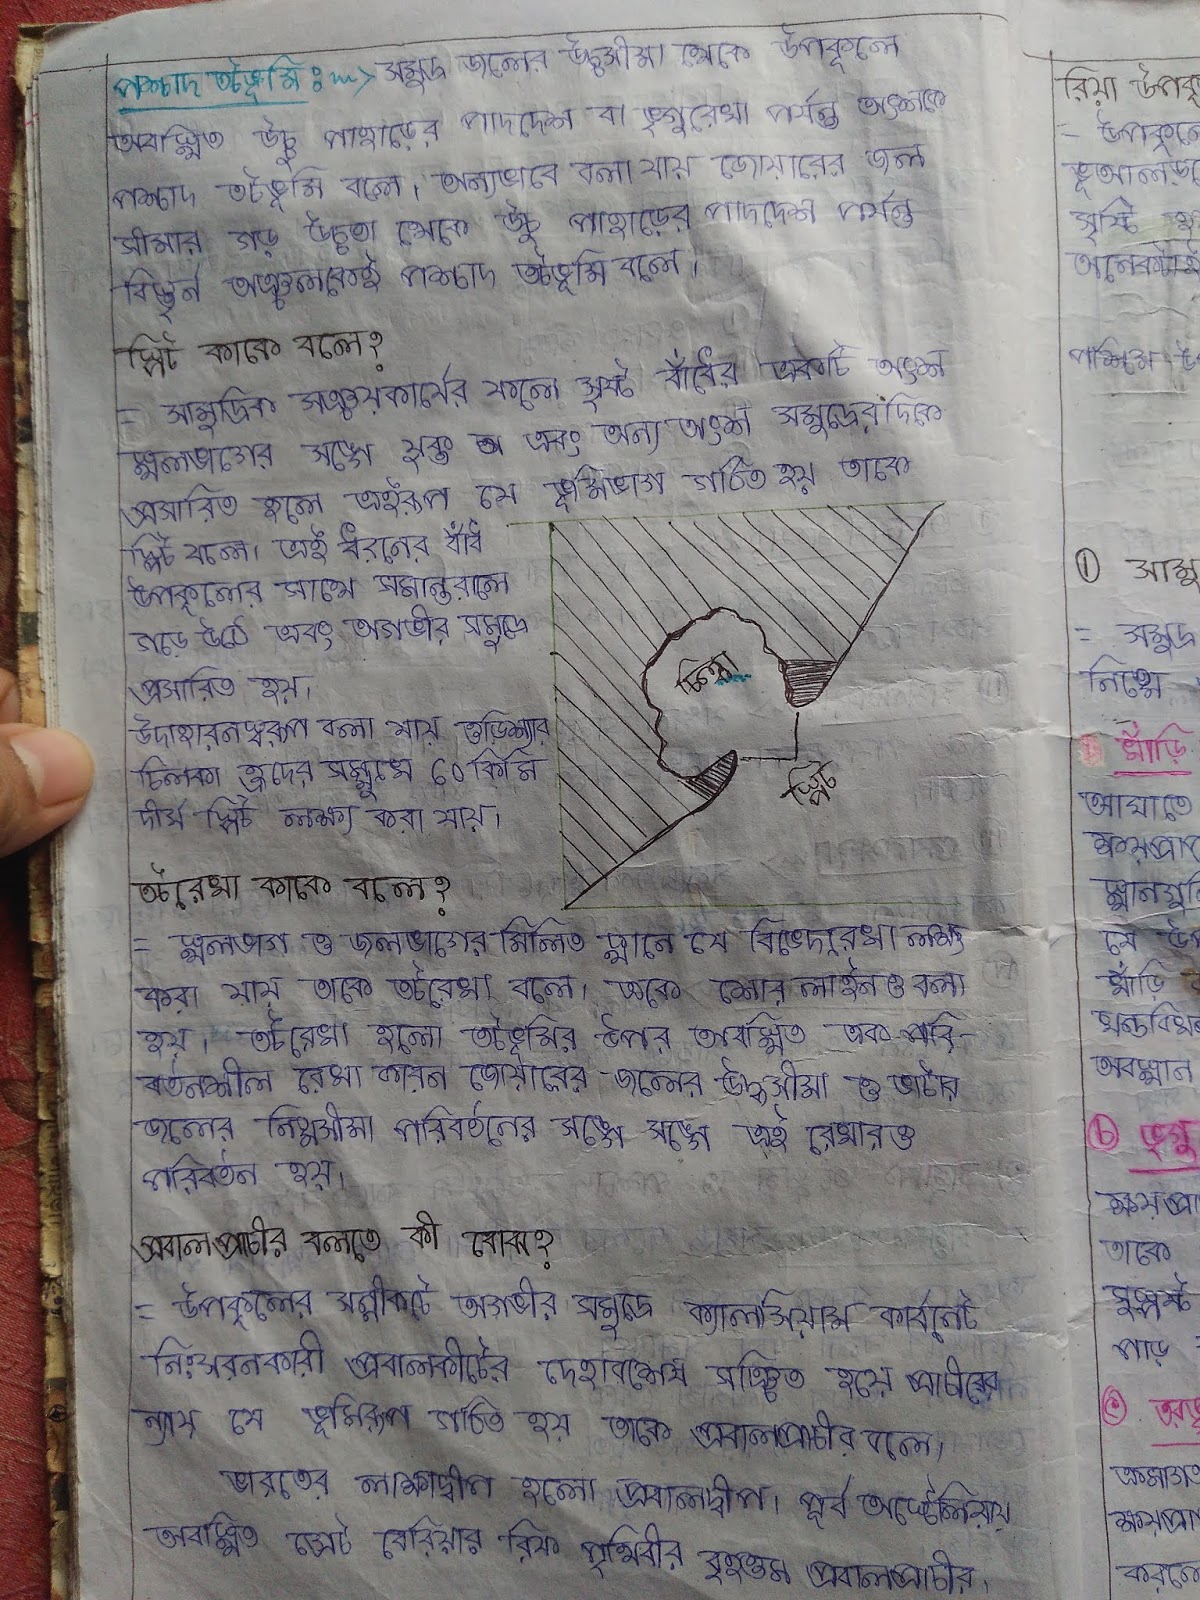 পশ্চাদ তটভূমি :~> সমুদ্র জলের উচ্চসীমা থেকে উপকূলে
অবস্থিত উঁচু পাহাড়ের পাদদেশ বা ভৃগুরেখা পর্যন্ত অংশকে
পশ্চাদ তটভূমি বলে। অন্যভাবে বলা যায় জোয়ারের জল
সীমার গড় উচ্চতা থেকে উঁচু পাহাড়ের পাদদেশ পর্যন্ত
বিস্তৃর্ন অঞ্চলকেই পশ্চাদ তটভূমি বলে।
স্পিট কাকে বলে?
= সামুদ্রিক সঞ্চয়কার্যের ফলে সৃষ্ট বাঁধের একটি অংশ
স্থলভাগের সঙ্গে যুক্ত এবং অন্য অংশ সমুদ্রের দিকে
প্রসারিত হলে এইরূপ যে ভূমিভাগ গঠিত হয় তাকে
স্পিট বলে। এই ধরনের বাঁধ
উপকূলের সাথে সমান্তরালে
গড়ে উঠে এবং অগভীর সমুদ্রে
প্রসারিত হয়।
উদাহারনস্বরূপ বলা যায় ওড়িশ্যার
চিলকা হ্রদের সম্মুখে ৬০ কিমি
দীর্ঘ স্পিট লক্ষ্য করা যায়।
চিল্কা
স্পিট
তটরেখা কাকে বলে?
= স্থলভাগ ও জলভাগের মিলিত স্থানে যে বিভেদরেখা লক্ষ্য
করা যায় তাকে তটরেখা বলে। একে শোর লাইনও বলা
হয়। তটরেখা হলো তটভূমির উপর অবস্থিত এক পরি-
বর্তনশীল রেখা কারন জোয়ারের জলের উচ্চসীমা ও ভাটার
জলের নিম্নসীমা পরিবর্তনের সঙ্গে সঙ্গে এই রেখারও
পরিবর্তন হয়।
প্রবালপ্রাচীর বলতে কী বোঝ?
= উপকূলের সন্নীকটে অগভীর সমুদ্রে ক্যালসিয়াম কার্বনেট
নিঃসরনকারী প্রবালকীটের দেহাবশেষ সঞ্চিত হয়ে প্রাচীরের
ন্যায় যে ভূমিরূপ গঠিত হয় তাকে প্রবালপ্রাচীর বলে।
ভারতের লাক্ষাদ্বীপ হলো প্রবালদ্বীপ। পূর্ব অস্ট্রেলিয়ায়
অবস্থিত গ্রেট বেরিয়ার রিফ পৃথিবীর বৃহত্তম প্রবালপ্রাচীর।
রিয়া
=
সৃষ্টি
পশ্চিম
①
= সমুদ্র
নিম্নে
খাঁড়ি
আঘাতে
যে
খাঁড়ি
অবস্থান
ⓑ ভৃগু
তাকে
পাড়
করলে